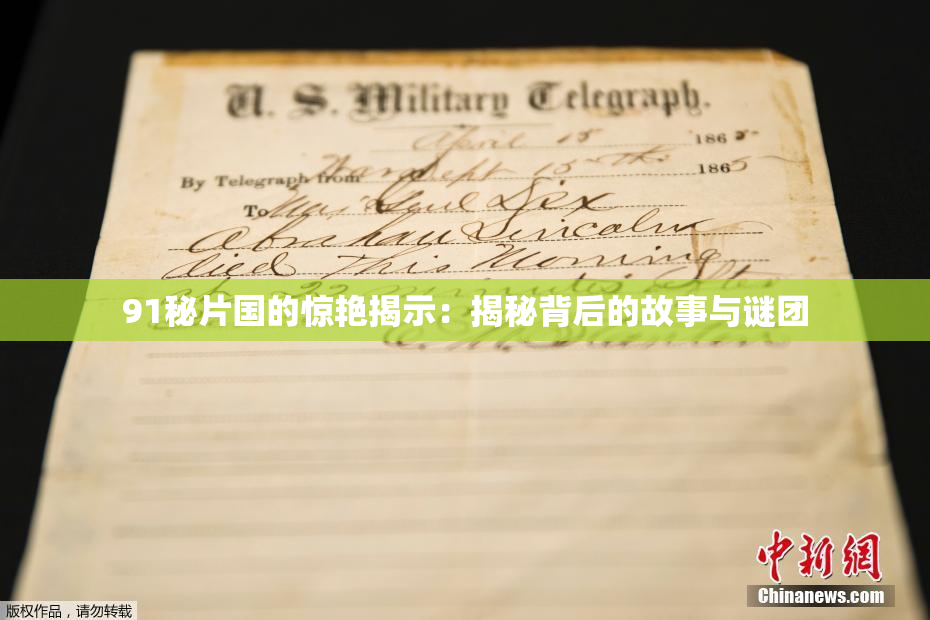 U. S. Military Telegraph.
April 15 1865
By Telegraph from War Dept 15th 1865
To Maj Genl Dix
Abraham Lincoln
died This Morning
22 minutes after
91秘片国的惊艳揭示：揭秘背后的故事与谜团
中新网
Chinanews.com
版权作品，请勿转载